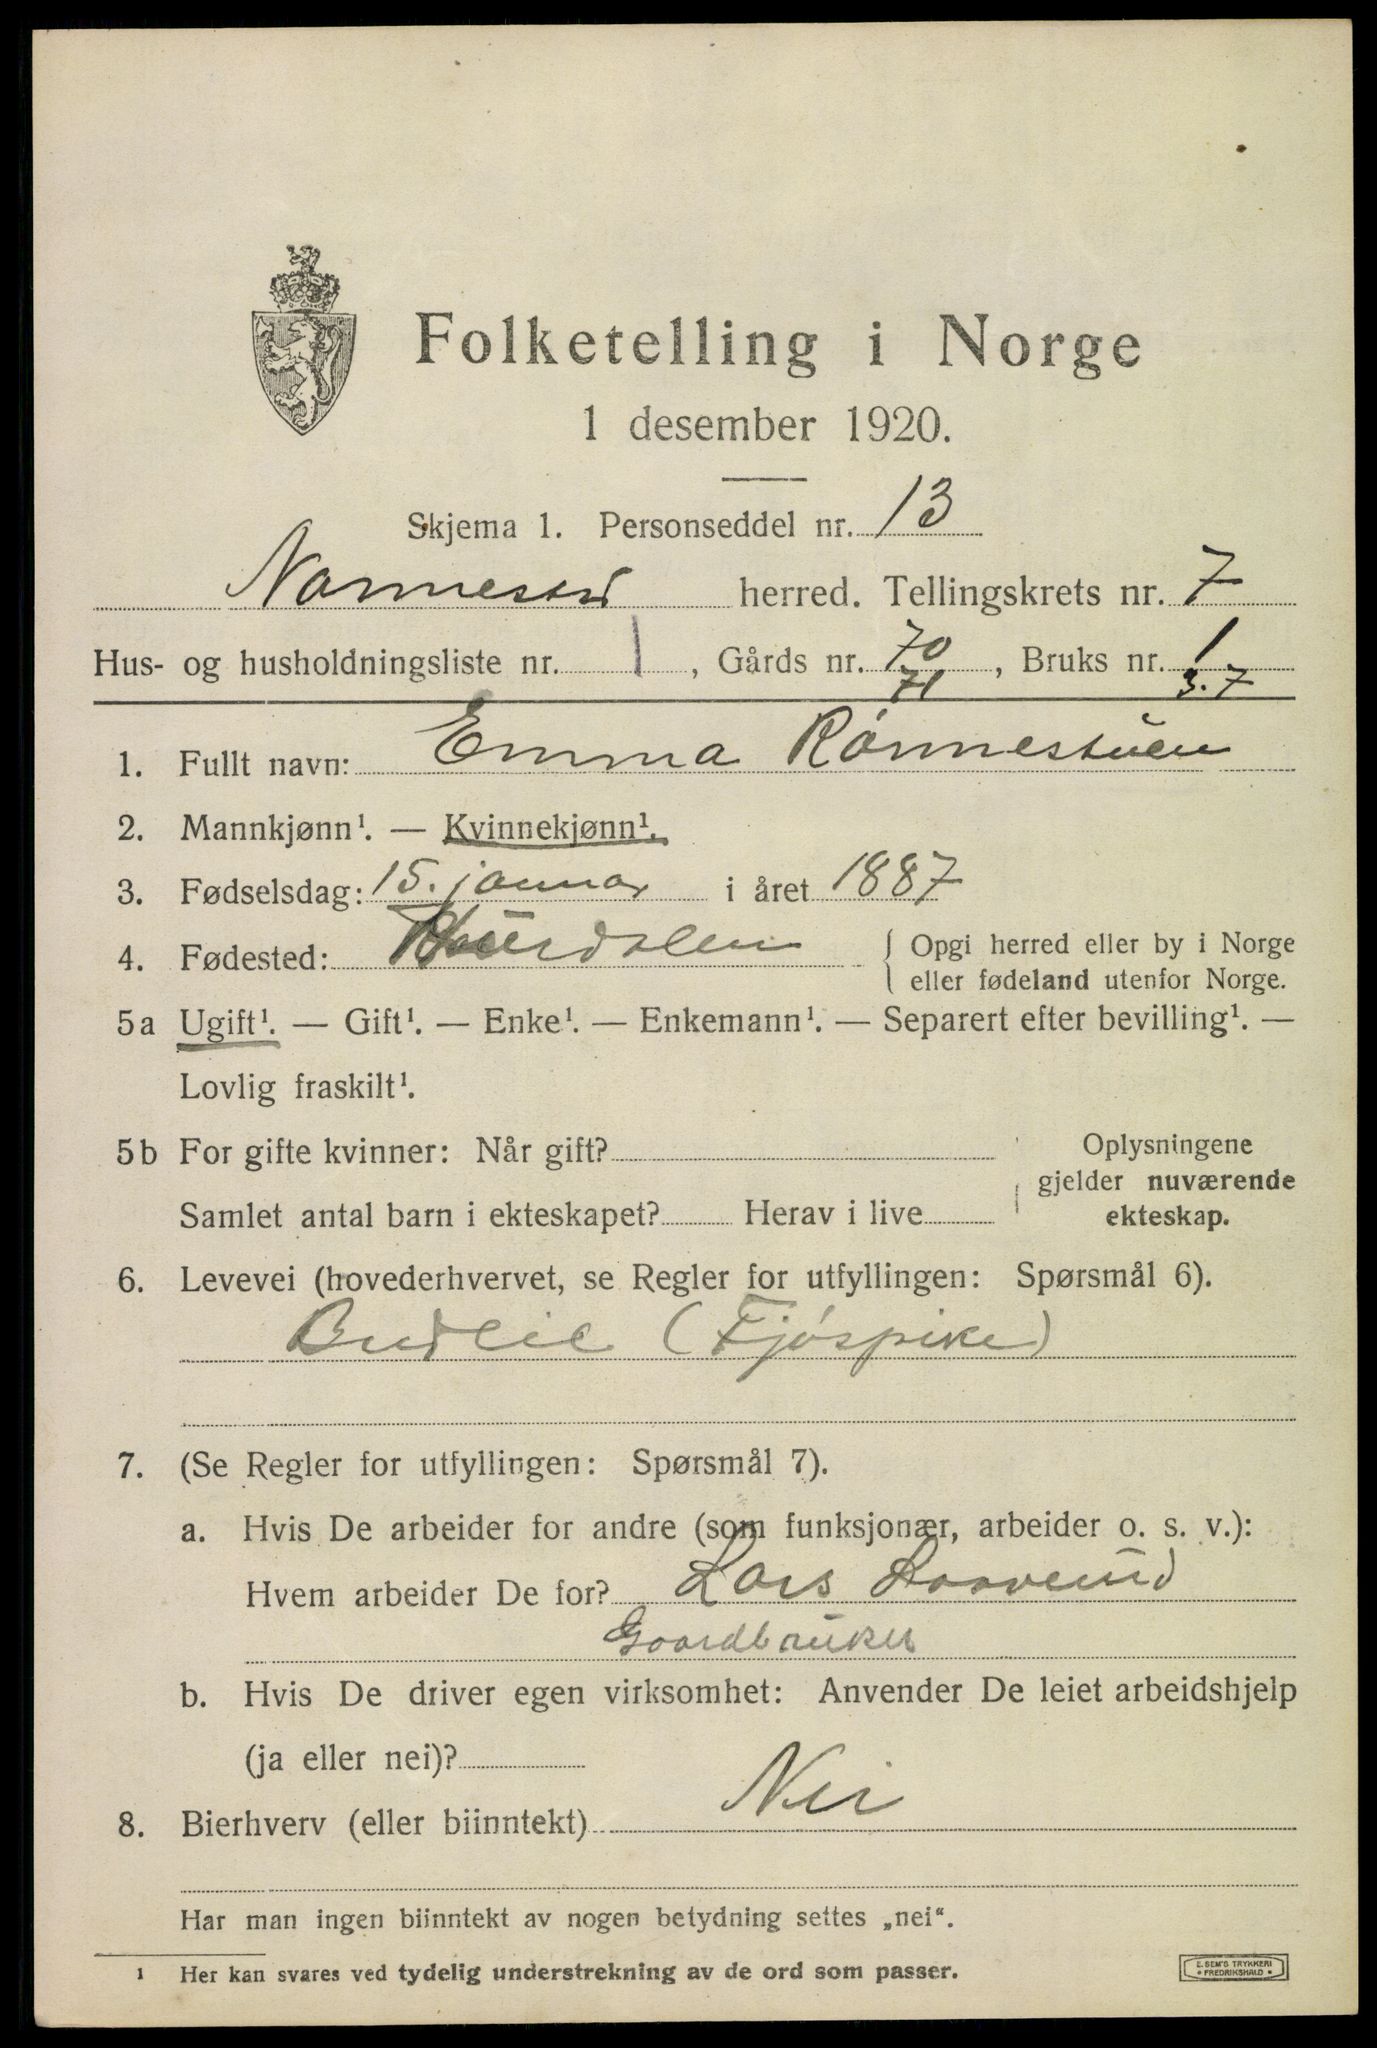 Folketelling i Norge
1 desember 1920.
Skjema 1. Personseddel nr. 13
Nannestad herred. Tellingskrets nr. 7
Hus- og husholdningsliste nr. 1, Gårds nr. 70, Bruks nr. 1
71 3.7
1. Fullt navn: Emma Rónnestuen
2. Mannkjønn¹. — Kvinnekjønn¹.
3. Fødselsdag: 15. januar i året 1887
4. Fødested: Hurdalen { Opgi herred eller by i Norge
eller fødeland utenfor Norge.
5a Ugift¹. — Gift¹. — Enke¹. — Enkemann¹. — Separert efter bevilling¹. —
Lovlig fraskilt¹.
5b For gifte kvinner: Når gift? Oplysningene
gjelder nuværende
Samlet antal barn i ekteskapet? Herav i live ekteskap.
6. Levevei (hovederhvervet, se Regler for utfyllingen: Spørsmål 6).
Budeie (Fjóspike)
7. (Se Regler for utfyllingen: Spørsmål 7).
a. Hvis De arbeider for andre (som funksjonær, arbeider o. s. v.):
Hvem arbeider De for? Lars
Gaardbruker
b. Hvis De driver egen virksomhet: Anvender De leiet arbeidshjelp
(ja eller nei)?
8. Bierhverv (eller biinntekt) Nei
Har man ingen biinntekt av nogen betydning settes „nei“.
¹ Her kan svares ved tydelig understrekning av de ord som passer.
E. SEM'S TRYKKERI
• FREDRIKSHALD •